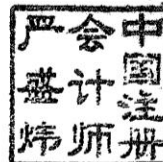 中国注册
会计师
严盛炜